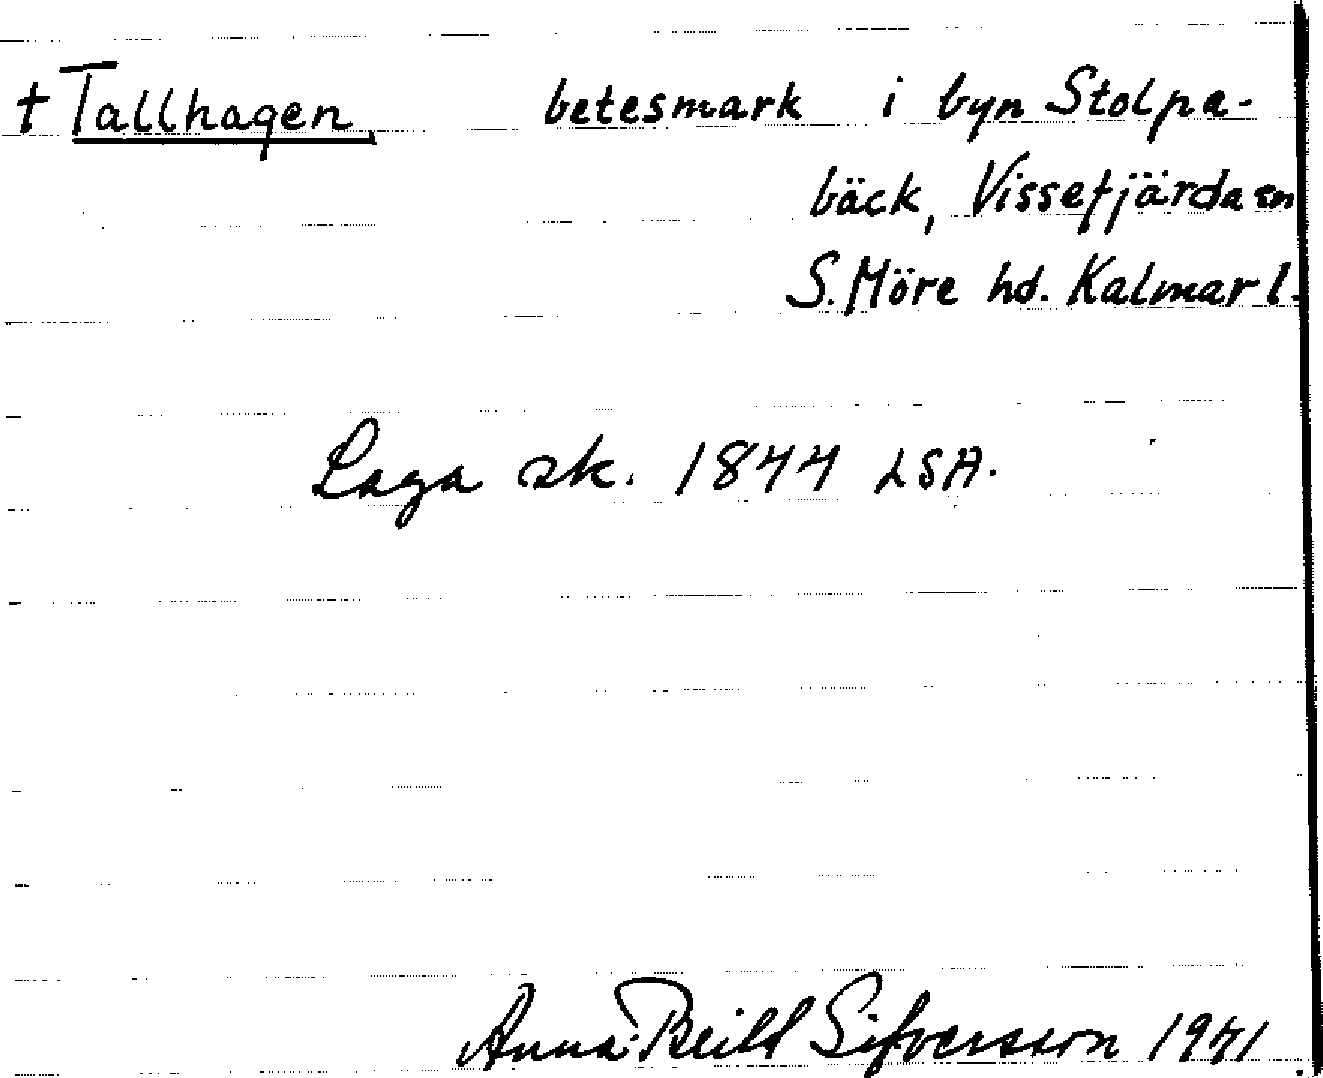 † Tallhagen betesmark i byn Stolpa-
bäck, Vissefjärda sn
S. Möre hd. Kalmar l.
Laga sk. 1844 LSA.
Anna-Britt Sifversson 1941